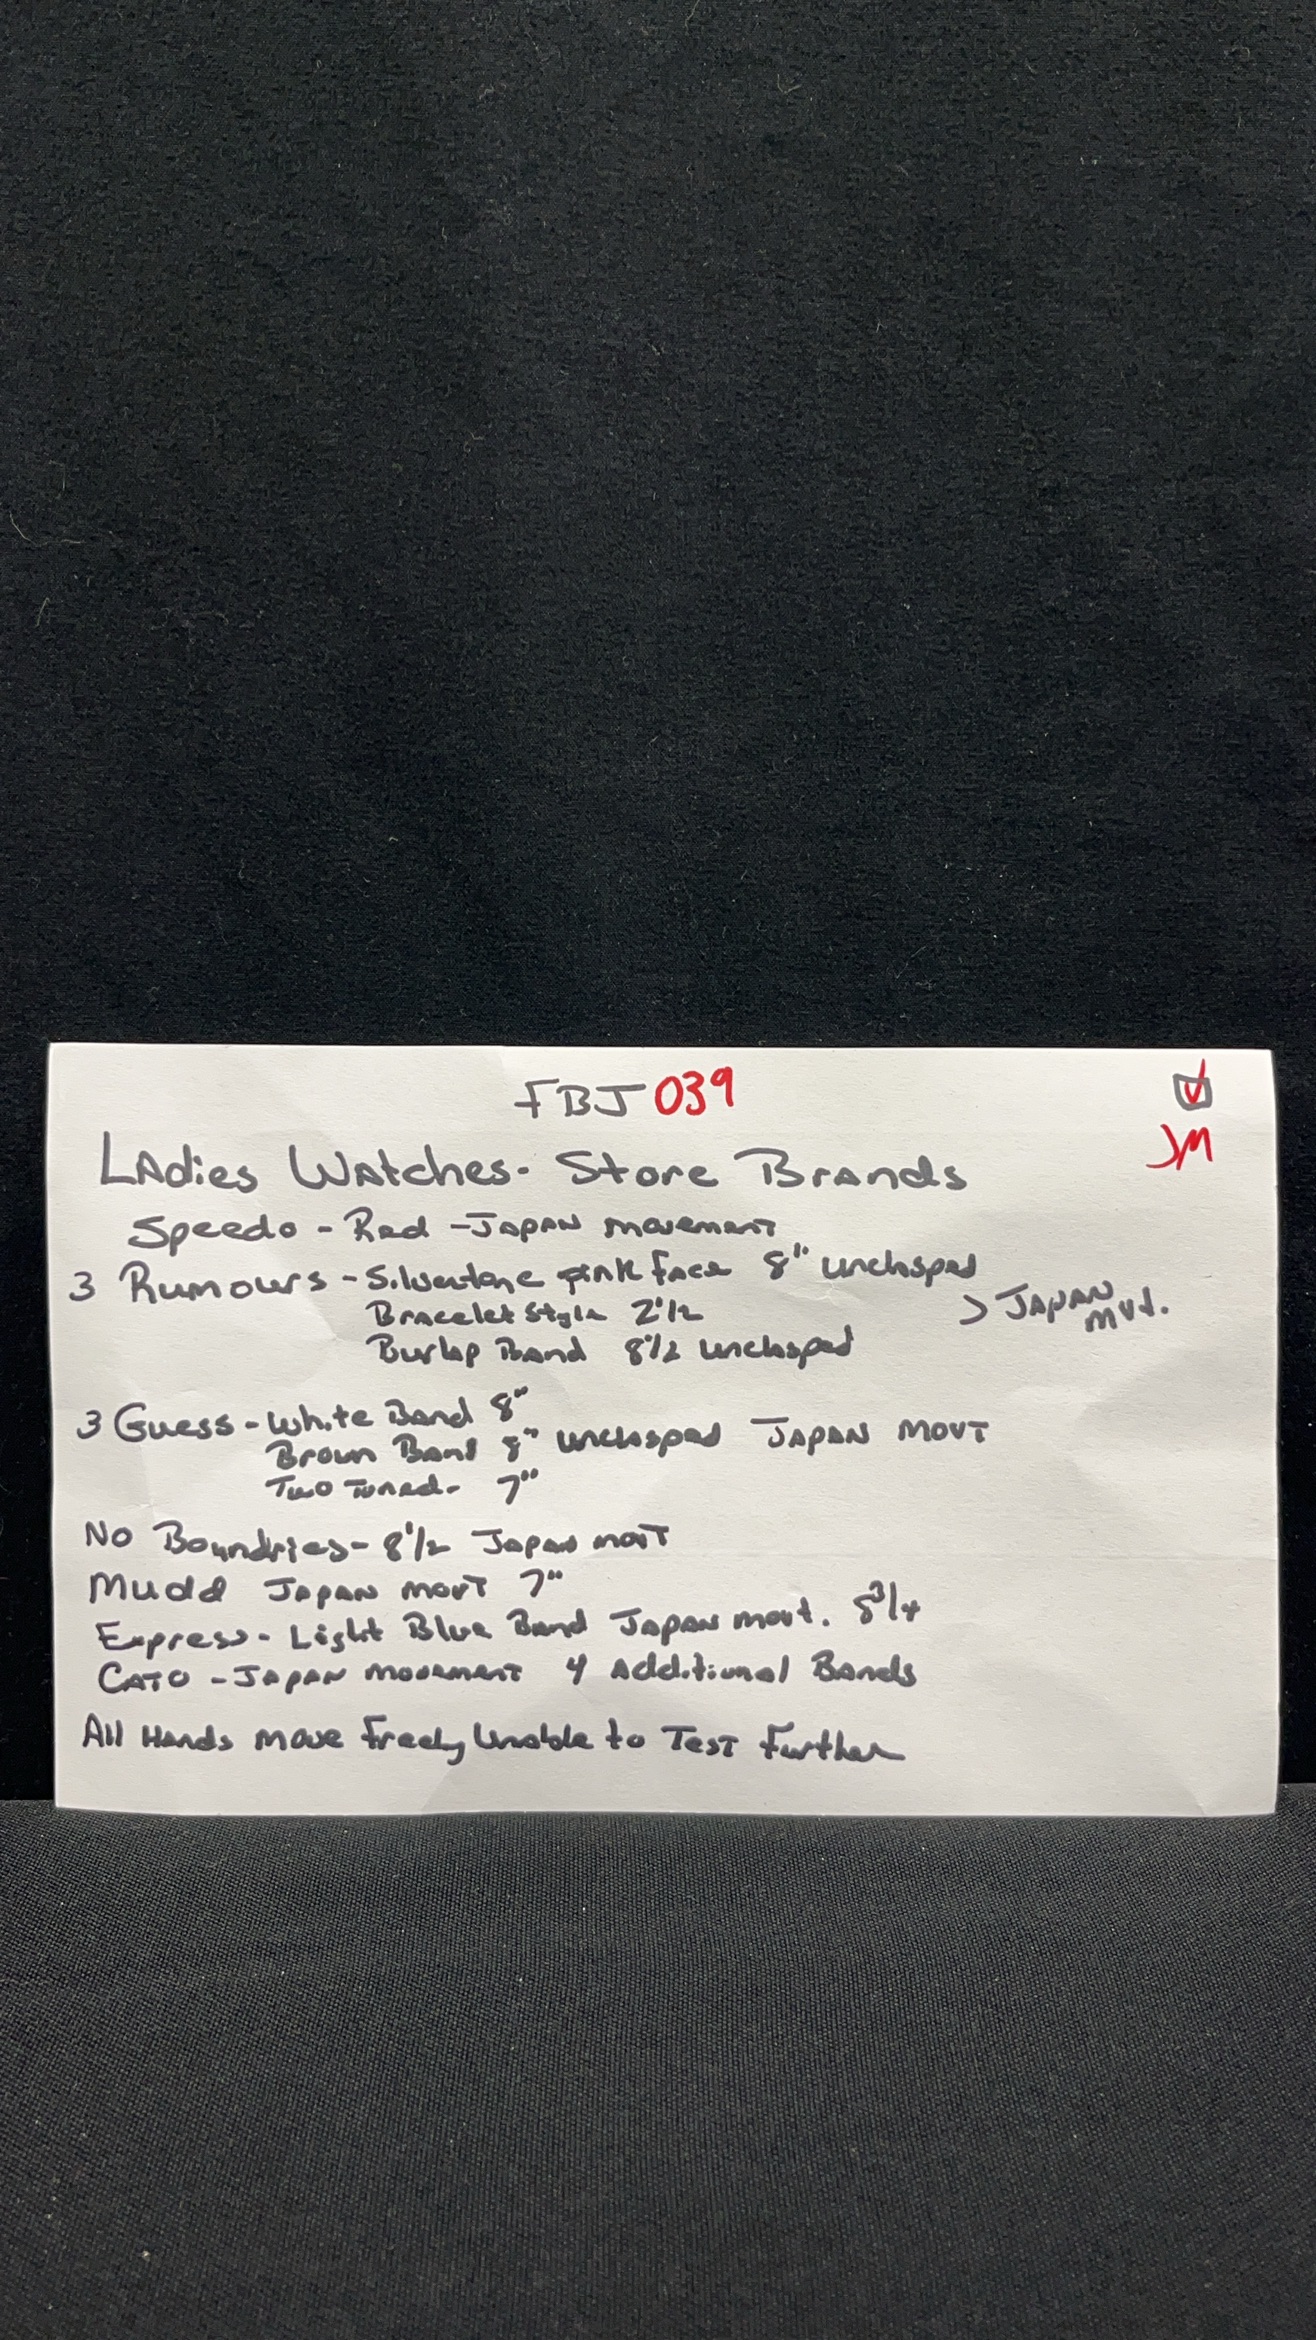 FBJ 039
JM
Ladies Watches - Store Brands
Speedo - Red - Japan movement
3 Rumours - Silvertone pink face 8" unclasped
Bracelet Style 2 1/2
> Japan mvt.
Burlap Band 8 1/2 unclasped
3 Guess - White Band 8"
Brown Band 8" unclasped Japan movt
Two Toned - 7"
No Boundries - 8 1/2 Japan movt
Mudd Japan movt 7"
Express - Light Blue Band Japan movt. 8 3/4
Cato - Japan movement 4 Additional Bands
All Hands move Freely Unable to Test Further